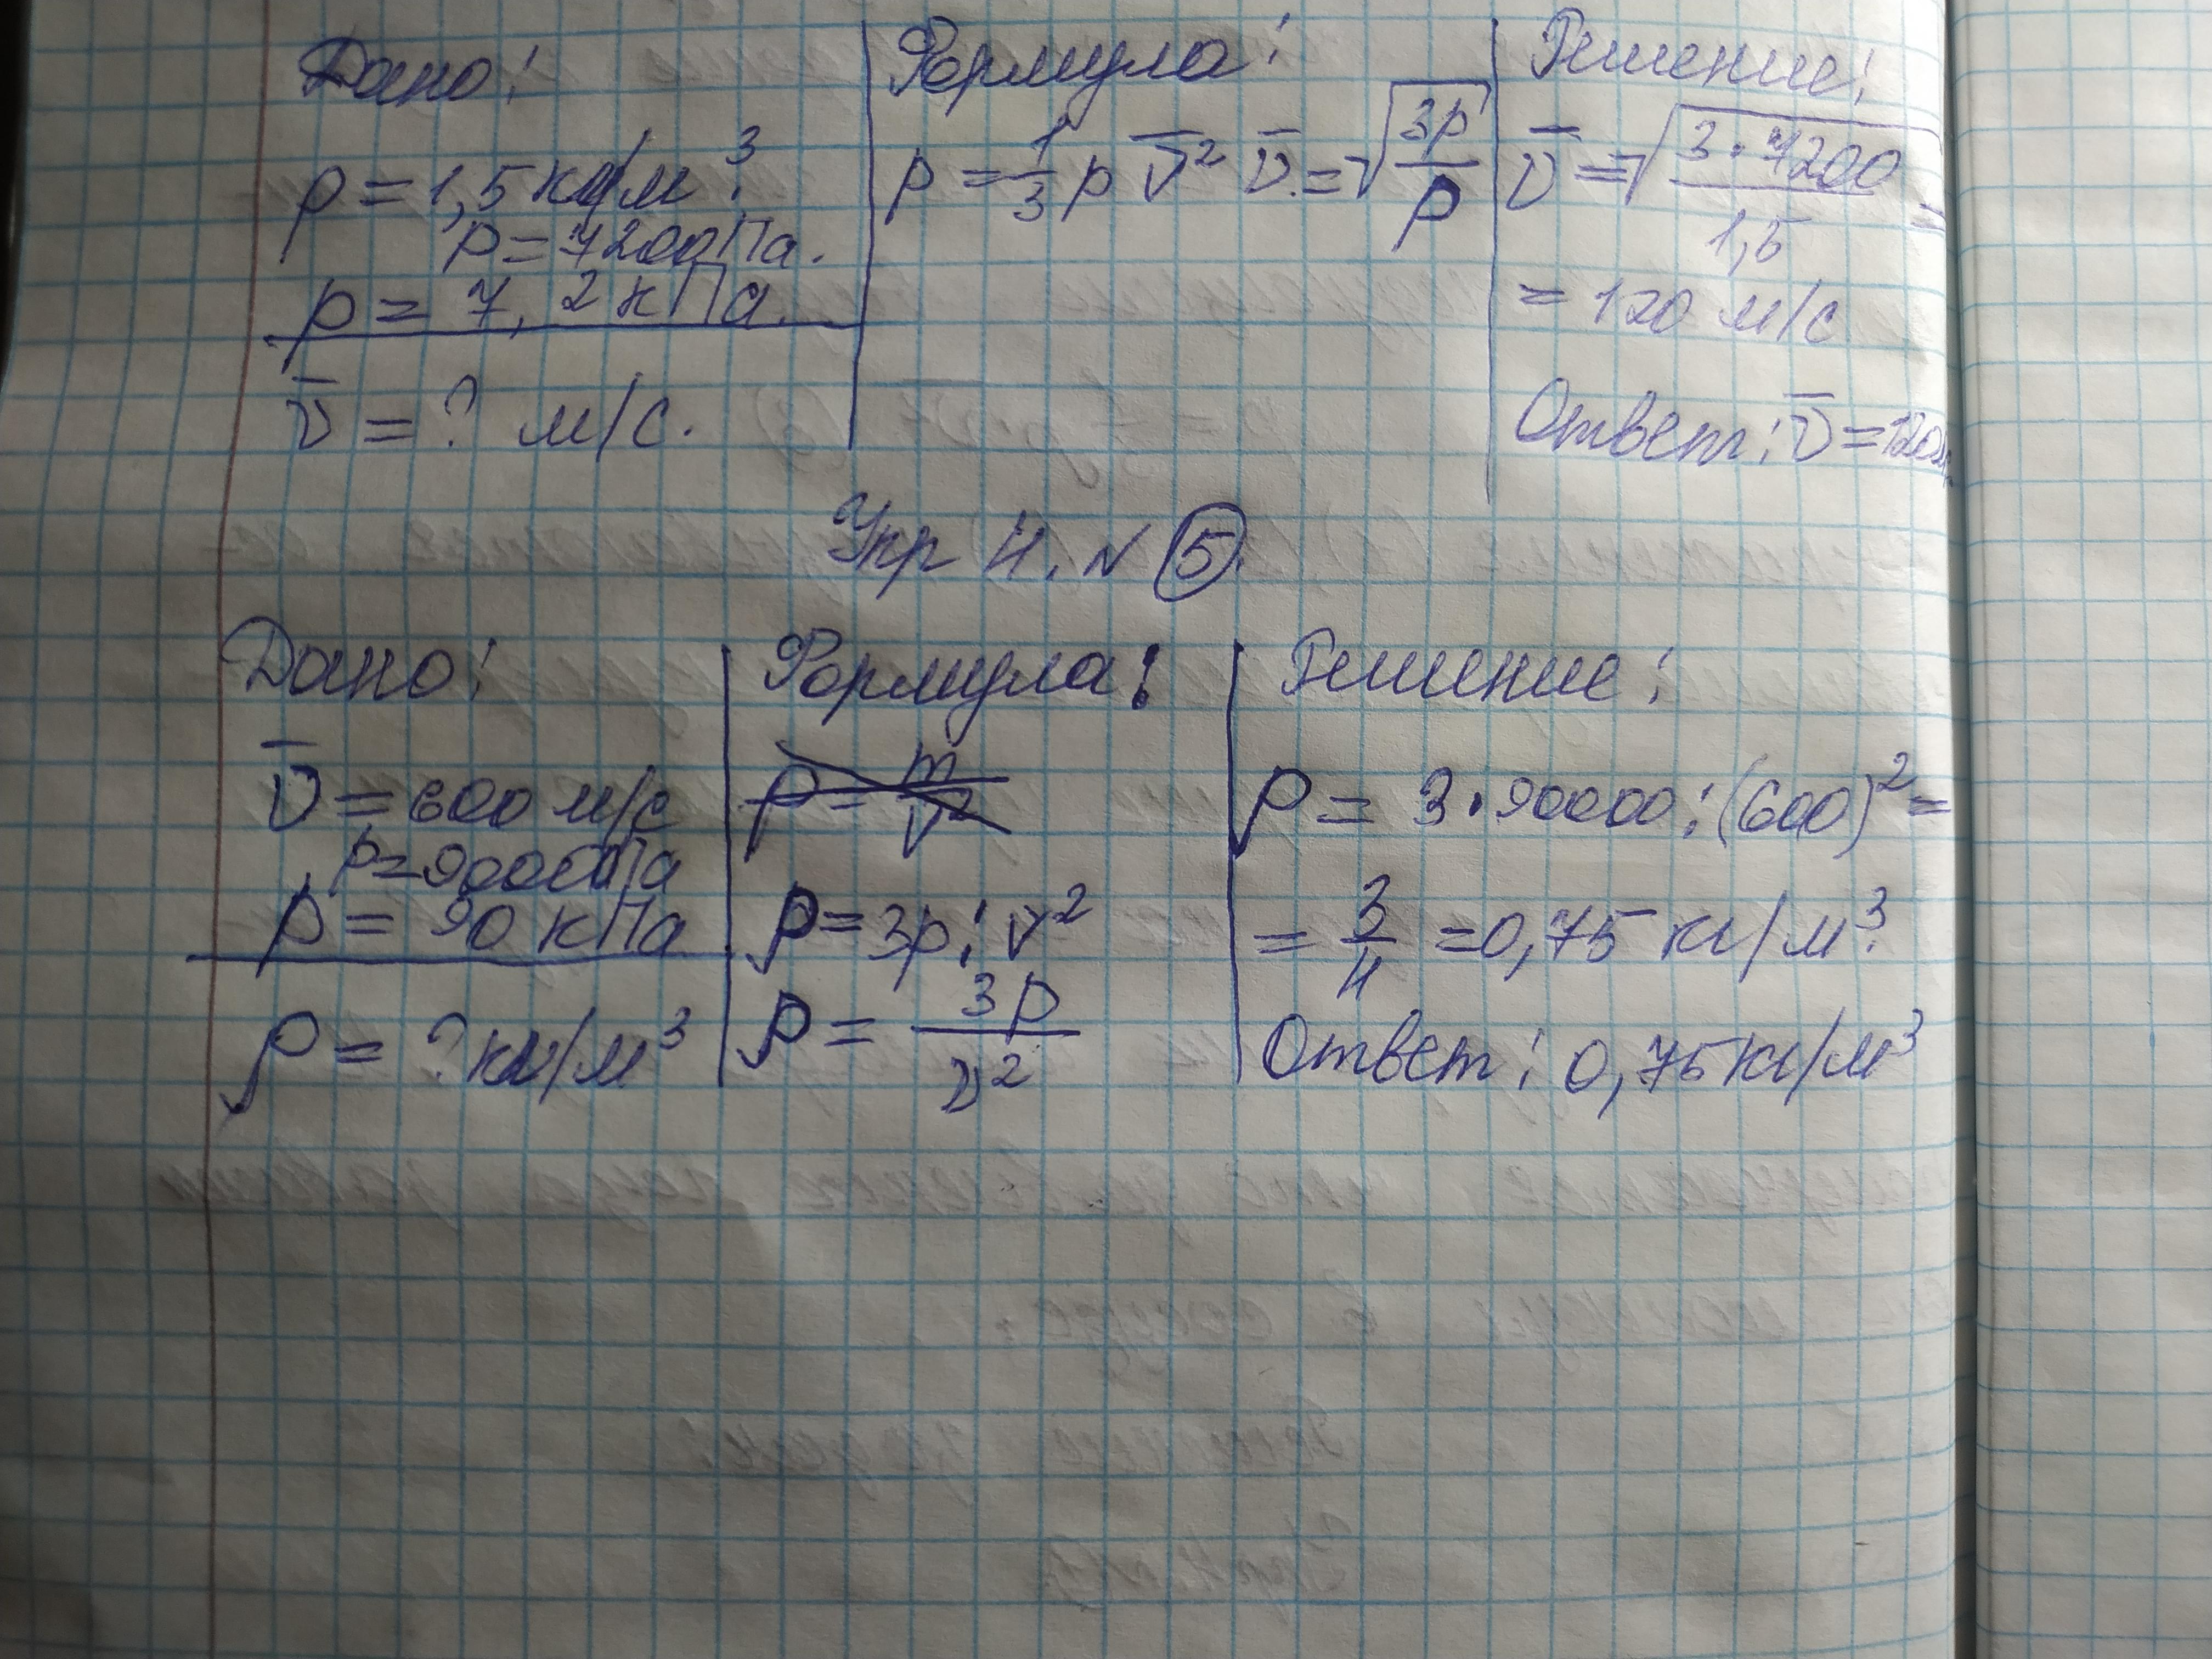 Дано:
ρ = 1,5 кг/м³.
p = 7200 Па.
p = 7,2 кПа.
v̅ = ? м/с.
Формула:
p = 1/3 ρ v̅² v̅. = √(3p/ρ)
Решение:
v̅ = √(3·7200/1,5) =
= 120 м/с
Ответ: v̅ = 120
Упр 4. № 5.
Дано:
v̅ = 600 м/с
p = 90000 Па
p = 90 кПа
ρ = ? кг/м³
Формула:
ρ = m/v²
ρ = 3p : v²
ρ = 3p/v²
Решение:
ρ = 3·90000 : (600)² =
= 3/4 = 0,75 кг/м³.
Ответ: 0,75 кг/м³